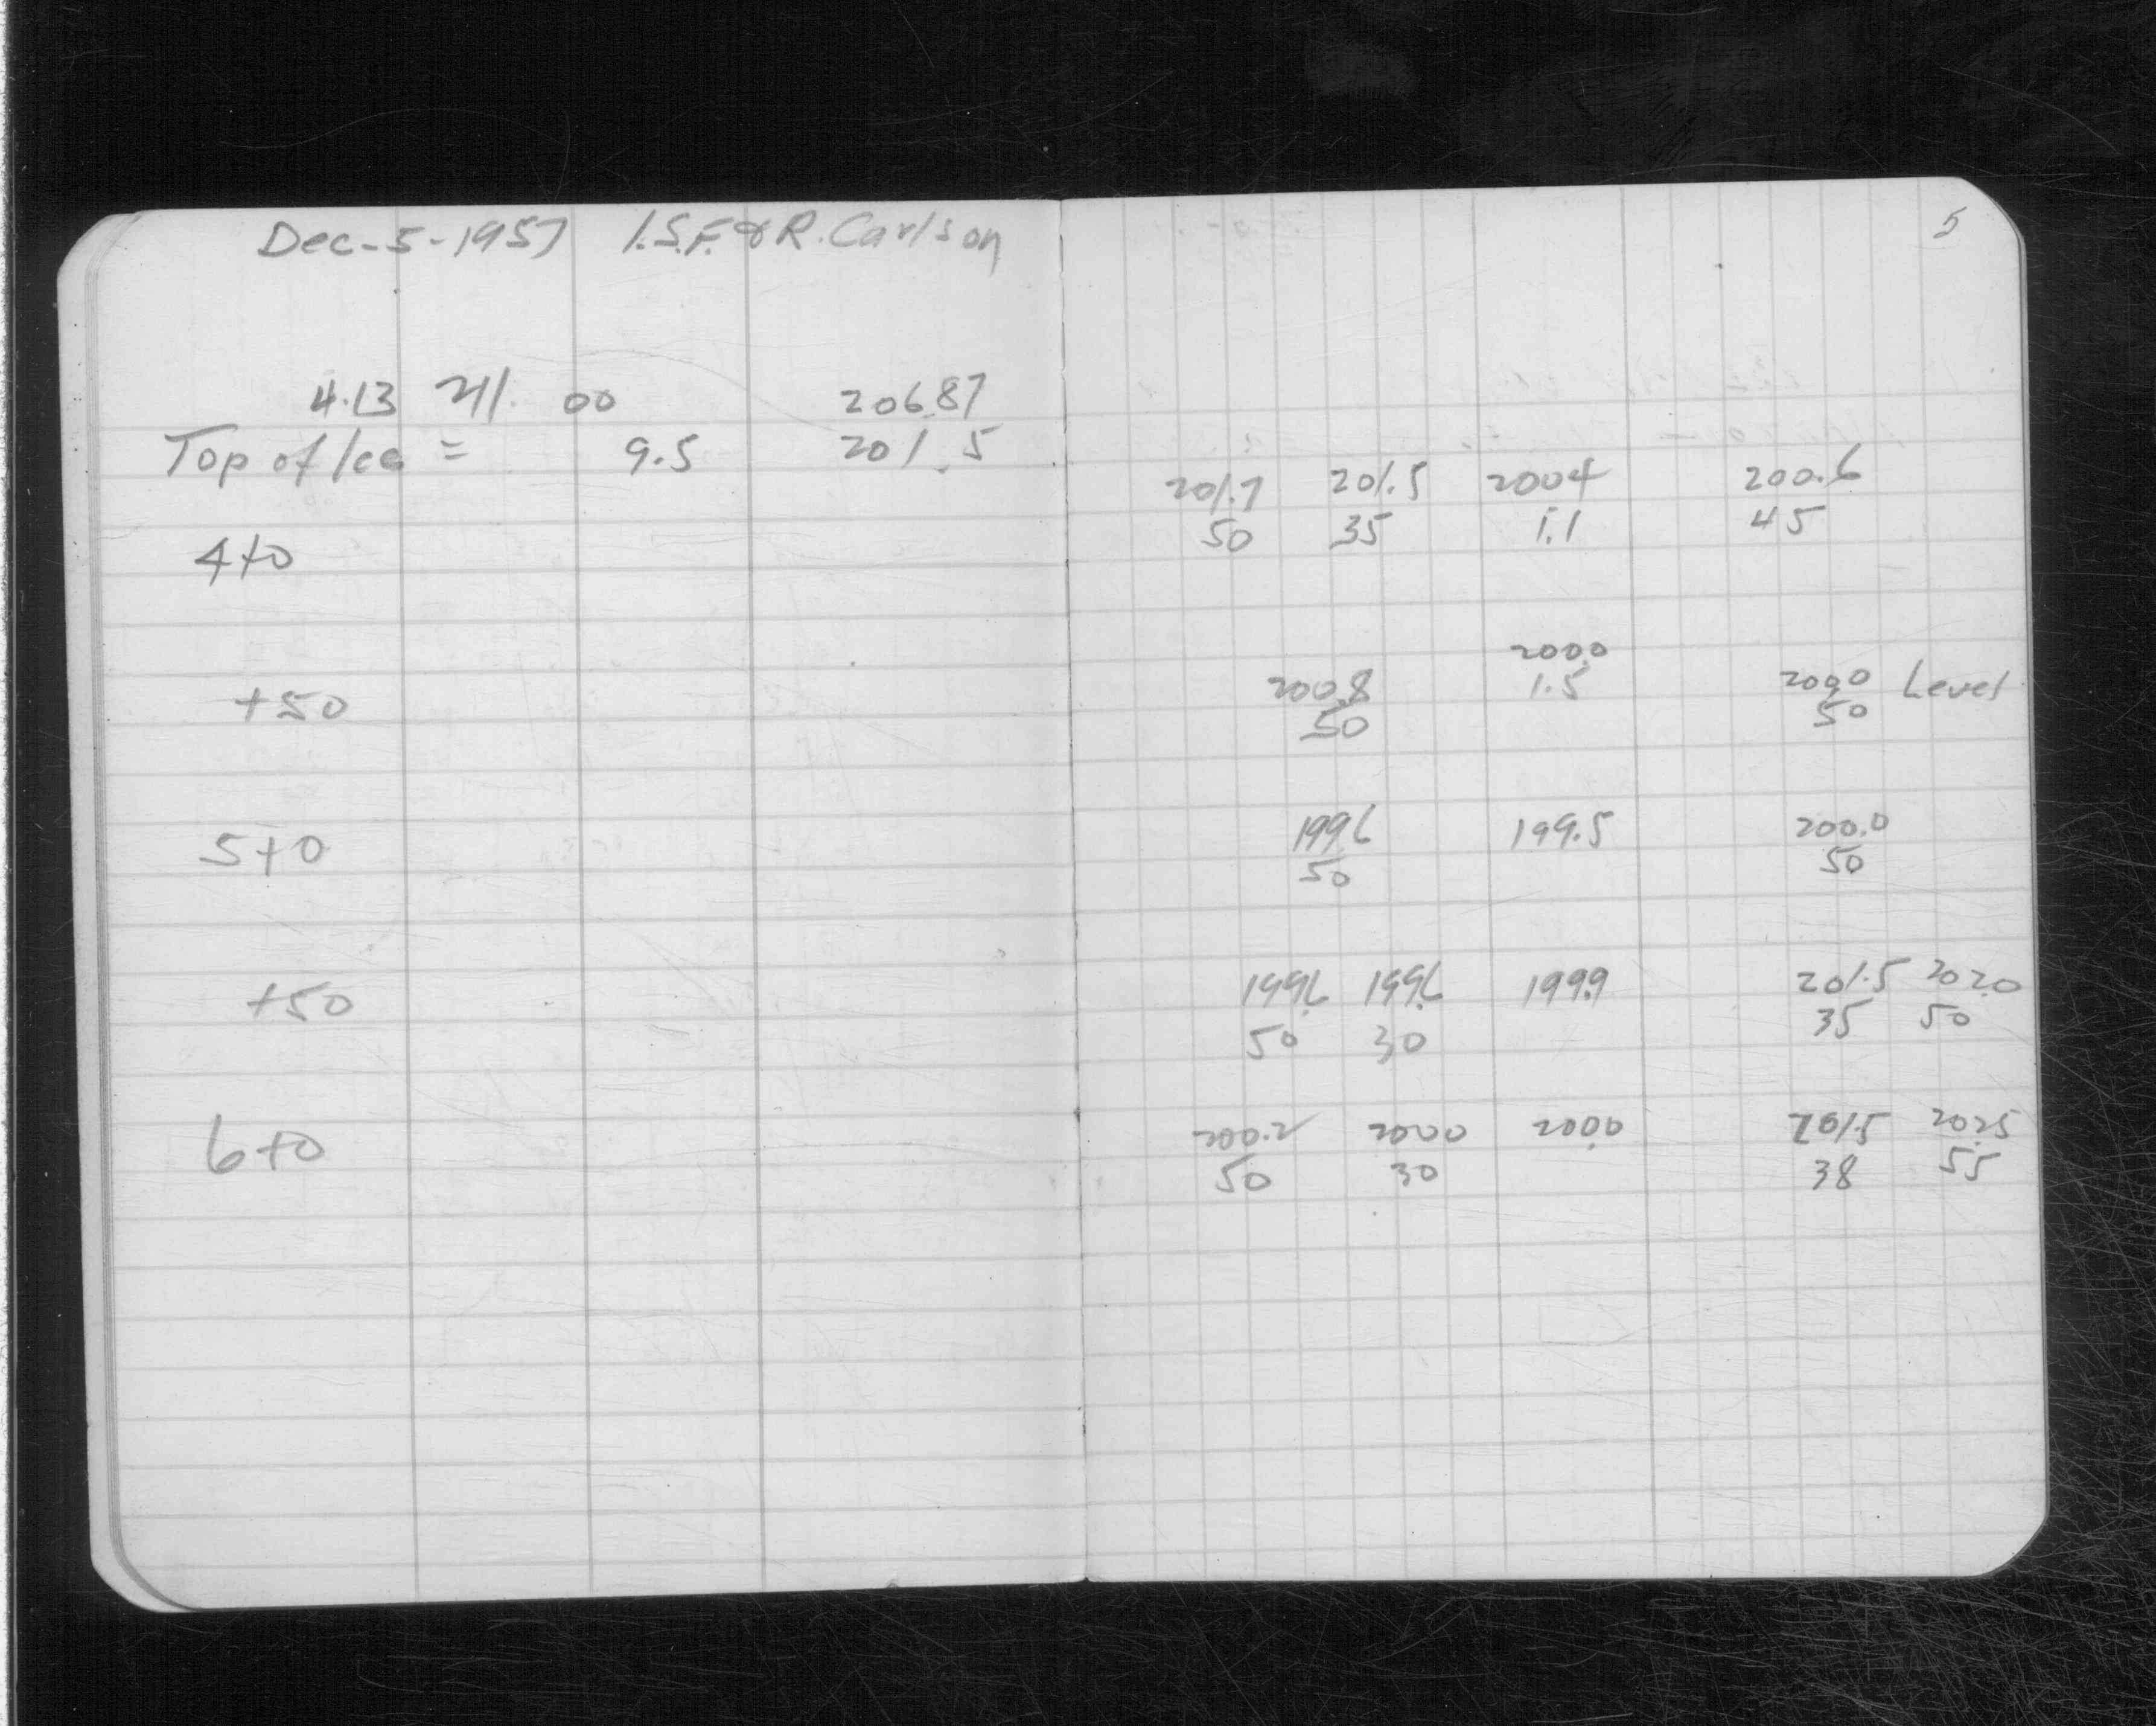 5
Dec-5-1957 I.S.F. & R. Carlson
4.13 211.00 206.87
Top of Ice = 9.5 201.5
201.7 201.5 200.4 200.6
50 35 1.1 45
4+0
200.0
200.8 1.5 200.0 Level
+50
50 50
199.6 199.5 200.0
5+0
50 50
199.6 199.6 199.9 201.5 202.0
+50
50 30 35 50
200.2 200.0 200.0 201.5 202.5
6+0
50 30 38 55